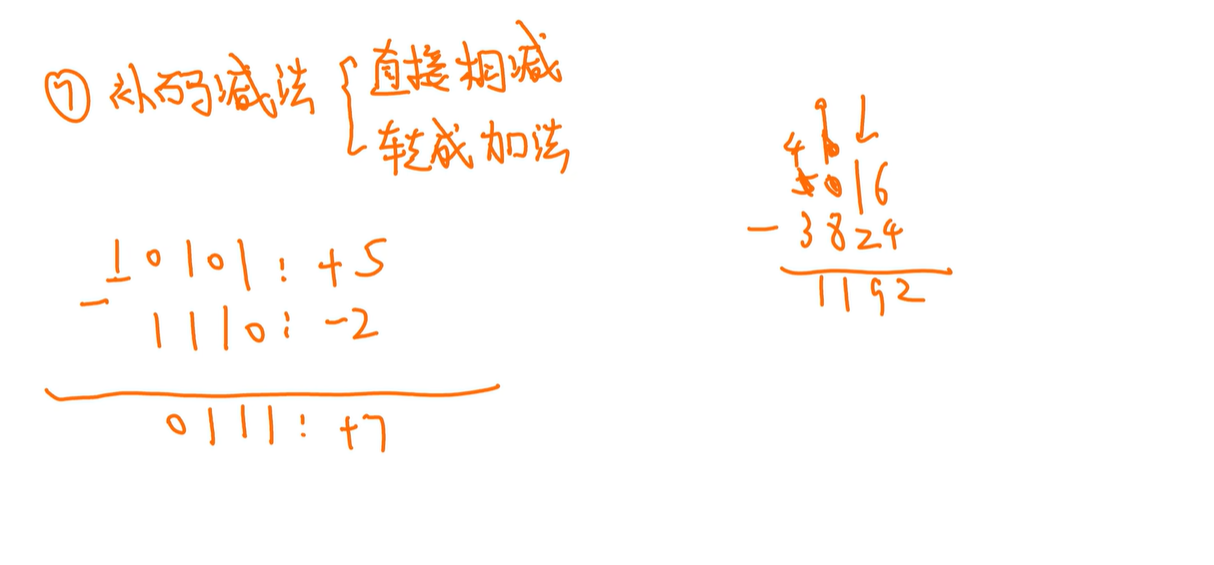 ⑦ 补码减法 { 直接相减
转成加法
1 0101 : +5
- 1110 : -2
0111 : +7
4
5016
- 3824
1192